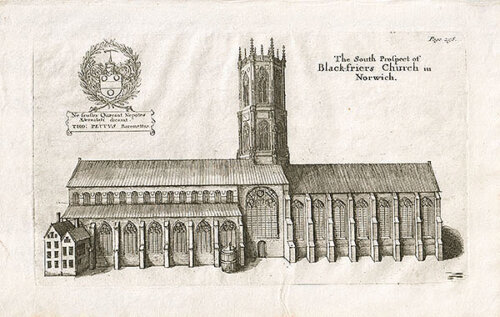 Page 298.
The South Prospect of
Black-friers Church in
Norwich.
Ne sensus Quærant Nepotes
dicavit
THO: PETTUS Baronettus